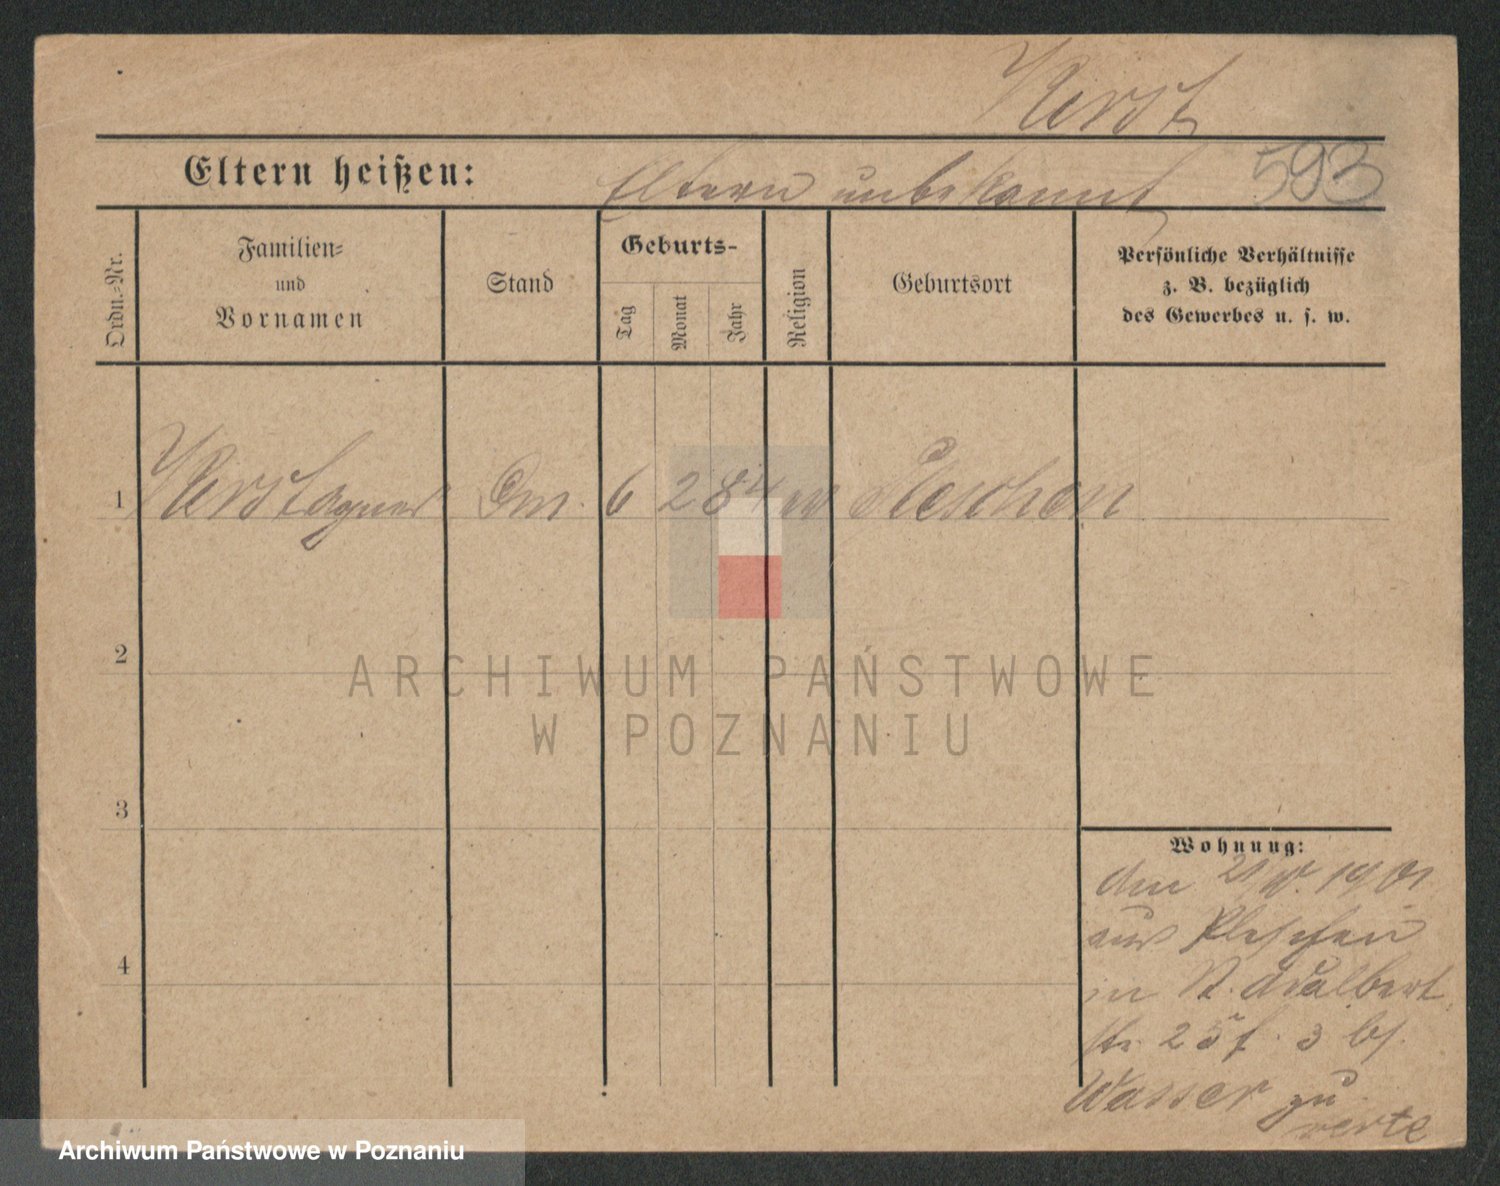 Kerst
Eltern heißen: Eltern unbekannt 593
Ordn.-Nr.
Familien-
und
Vornamen
Stand
Geburts-
Tag
Monat
Jahr
Religion
Geburtsort
Persönliche Verhältnisse
z. B. bezüglich
des Gewerbes u. s. w.
1 Kerst Agnes 6 2 84 Pleschen
2
3
4
Wohnung:
den 21/ 1901
aus Pleschen
in St. Adalbert
str. 25 3 bs.
Wasser
ARCHIWUM PAŃSTWOWE
W POZNANIU
Archiwum Państwowe w Poznaniu